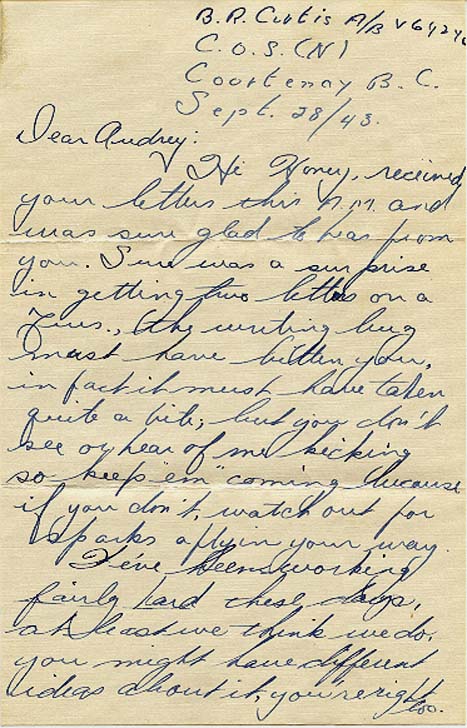 B. R. Curtis A/B V6424
C.O.S. (N)
Courtenay B.C.
Sept. 28/43.
Dear Audrey:
Hi Honey, received
your letters this A.M. and
was sure glad to hear from
you. Sure was a surprise
in getting two letters on a
Tues., the writing bug
must have bitten you,
in fact it must have taken
quite a bite; but you don't
see or hear of me kicking
so keep "em" coming because
if you don't, watch out for
sparks a flyin your way.
I've been working
fairly hard these days,
at least we think we do,
you might have different
ideas about it, you're right too.